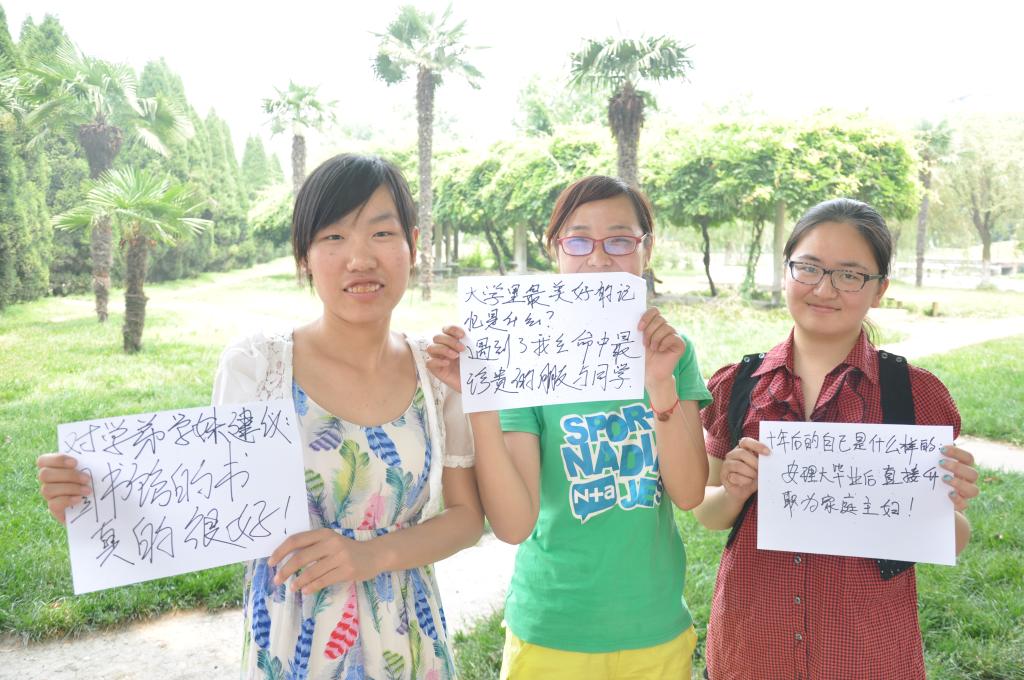 对学弟学妹建议:
图书馆的书
真的很好!
大学里最美好的记
忆是什么?
遇到了我生命中最
珍贵的朋友与同学.
SPOR
NADI
N+a
JES
十年后的自己是什么样的:
安理大毕业后直接升
职为家庭主妇!